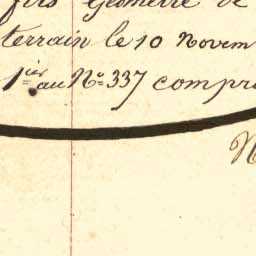 fils Géomètre de
terrain le 10 Novem
1ier au N° 337 compr
N